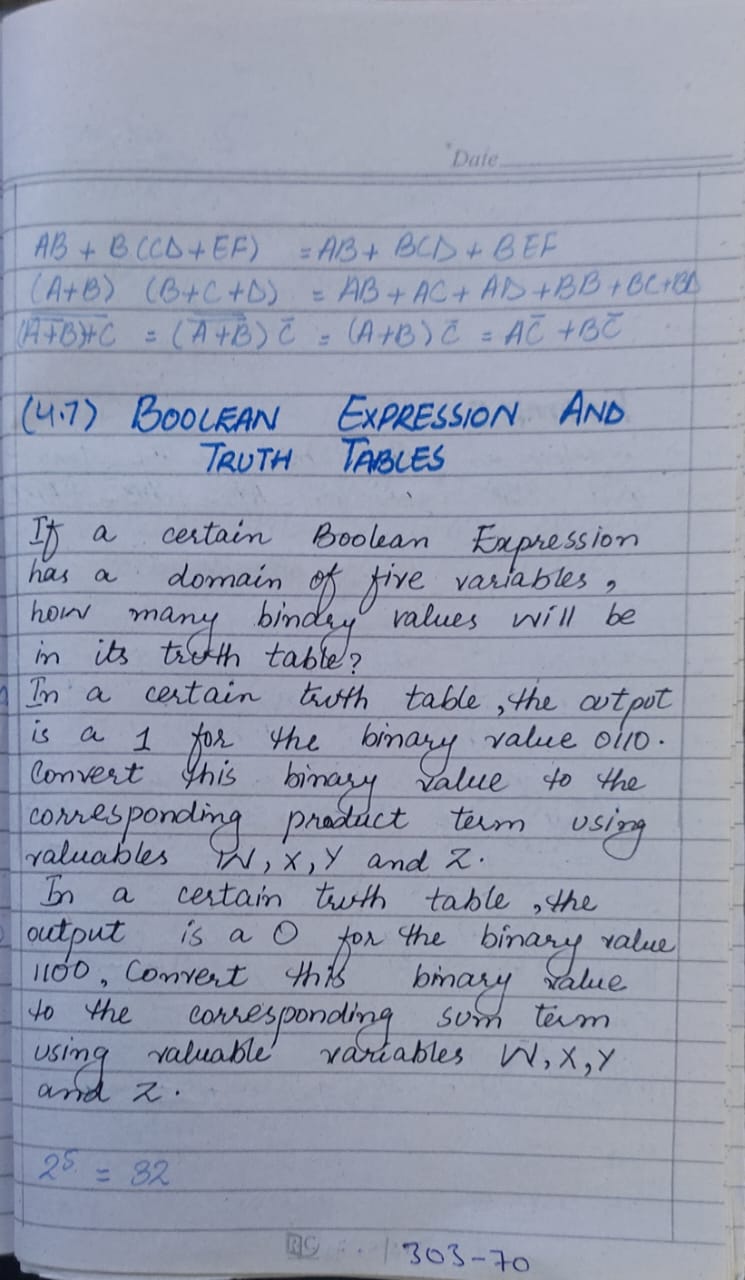 Date
AB + B(CD+EF) = AB + BCD + BEF
(A+B) (B+C+D) = AB + AC + AD + BB + BC + BD
= (A̅+̅B̅) C̅ = (A+B) C̅ = AC̅ + BC̅
(4.7) BOOLEAN EXPRESSION AND
TRUTH TABLES
If a certain Boolean Expression
has a domain of five variables,
how many binary values will be
in its truth table?
In a certain truth table, the output
is a 1 for the binary value 0110.
Convert this binary value to the
corresponding product term using
valuables W, X, Y and Z.
In a certain truth table, the
output is a 0 for the binary value
1100, Convert this binary value
to the corresponding sum term
using valuable variables W, X, Y
and Z.
2⁵ = 32
303-70